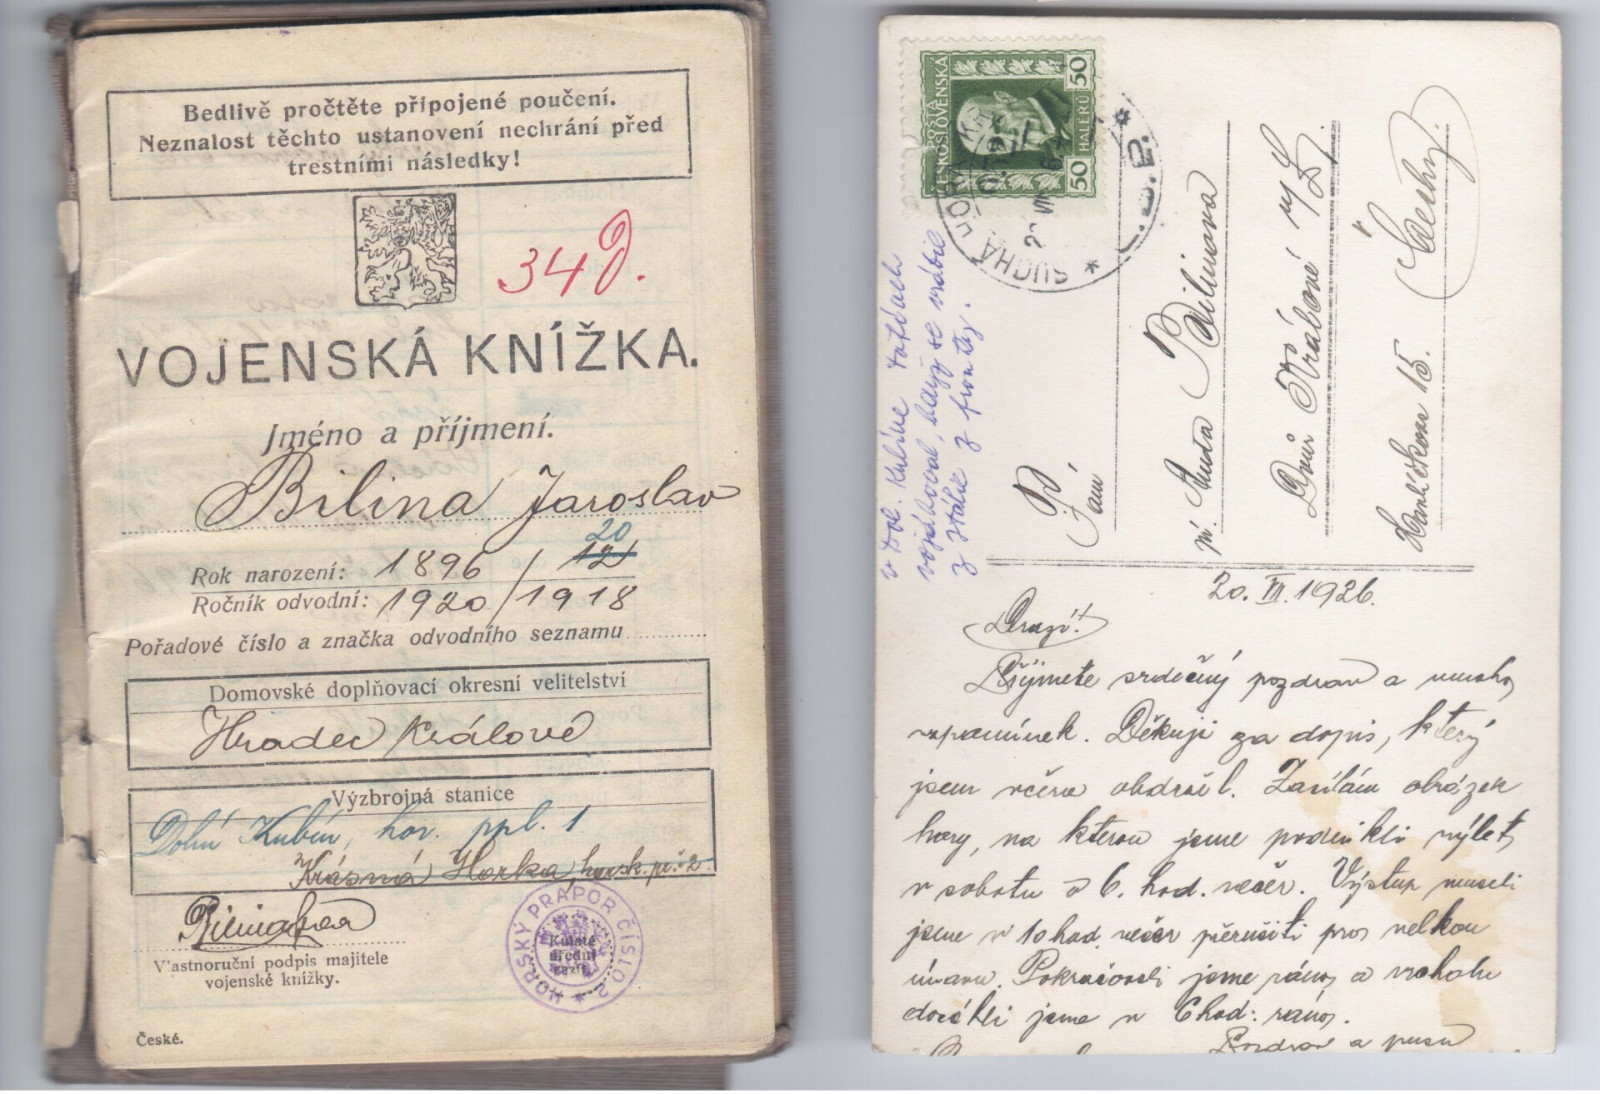 Bedlivě pročtěte připojené poučení.
Neznalost těchto ustanovení nechrání před
trestními následky!
34
VOJENSKÁ KNÍŽKA.
Jméno a příjmení.
Bilina Jaroslav
20
Rok narození: 1896 / 12
Ročník odvodní: 1920 / 1918
Pořadové číslo a značka odvodního seznamu
Domovské doplňovací okresní velitelství
Hradec Králové
Výzbrojná stanice
Dolní Kubín, hor. ppl. 1
Krásná Horka horsk. pr. 2
Vlastnoruční podpis majitele
vojenské knížky.
HORSKÝ PRAPOR ČÍSLO 2
Kulaté
úřední
razít.
České.
ČESKOSLOVENSKÁ
50 HALÉŘŮ 50
SUCHÁ HORA
v Dol. Kubíne
vojákoval, když se vrátil
z Itálie z fronty.
Paní
Bilinova
Dvůr Králové n/L
Havlíčkova 15. Čechy.
20. VII. 1926.
Drazí!
Přijmete srdečný pozdrav a mnoho
vzpomínek. Děkuji za dopis, který
jsem včera obdržel. Zasílám obrázek
hory, na kterou jsme podnikli výlet
v sobotu o 6. hod. večer. Výstup museli
jsme v 10 hod. večer přerušiti pro velkou
únavu. Pokračovali jsme ráno a vrcholu
docíli jsme v 6 hod. ráno.
Pozdrav a pusu